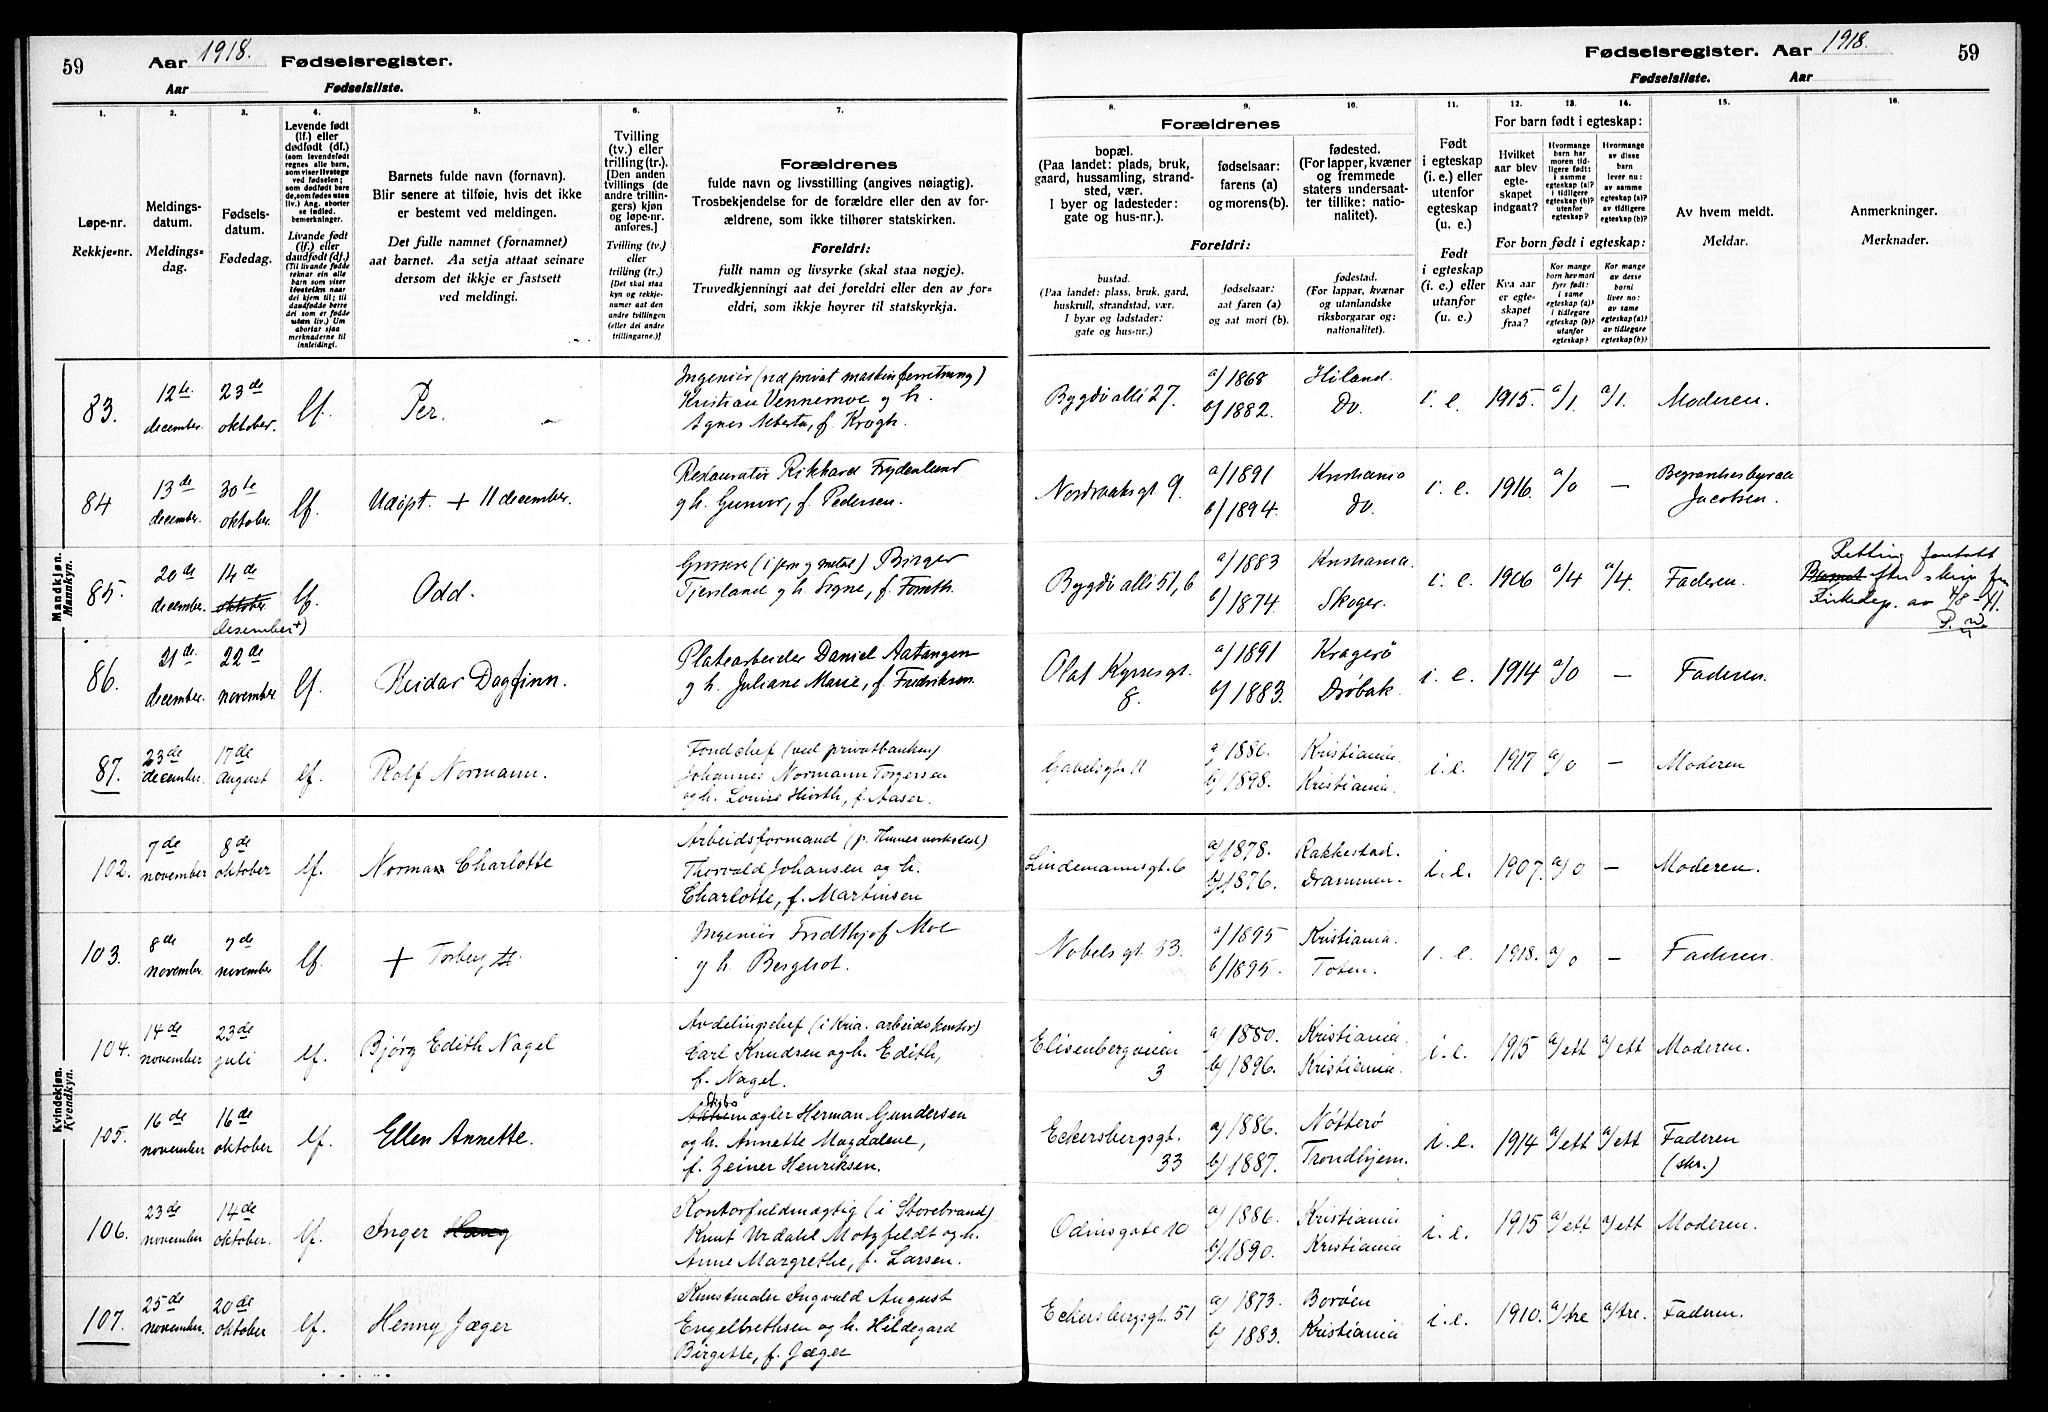 59
Aar 1918. Fødselsregister.
Aar
Fødselsliste.
Fødselsregister. Aar 1918.
59
Fødselsliste. Aar
1. 2. 3. 4. 5. 6. 7. 8. 9. 10. 11. 12. 13. 14. 15. 16.
Løpe-nr.
Rekkje-nr.
Meldings-
datum.
Meldings-
dag.
Fødsels-
datum.
Fødedag.
Levende født
(lf.) eller
dødfødt (df.)
(som levendefødt
regnes alle barn,
som viser livstegn
ved fødselen;
som dødfødt bare
de, som fødes uten
liv.) Ang. aborter
se indled.
bemerkninger.
Livande født
(lf.) eller
daudfødt (df.)
(Til livande fødde
reknar ein alle
barn som viser
livsteikn naar
dei kjem til; til
daudfødde berre
dei som er fødde
utan liv.) Um
abortar sjaa
merknaderne til
innleidingi.
Barnets fulde navn (fornavn).
Blir senere at tilføie, hvis det ikke
er bestemt ved meldingen.
Det fulle namnet (fornamnet)
aat barnet. Aa setja attaat seinare
dersom det ikkje er fastsett
ved meldingi.
Tvilling
(tv.) eller
trilling (tr.).
[Den anden
tvillings (de
andre trillin-
gers) kjøn
og løpe-nr.
anføres.]
Tvilling (tv.)
eller
trilling (tr.)
[Det skal staa
kyn og rekkje-
numer aat den
andre tvillingen
(eller dei andre
trillingarne.)]
Forældrenes
fulde navn og livsstilling (angives nøiagtig).
Trosbekjendelse for de forældre eller den av for-
ældrene, som ikke tilhører statskirken.
Foreldri:
fullt namn og livsyrke (skal staa nøgje).
Truvedkjenningi aat dei foreldri eller den av for-
eldri, som ikkje høyrer til statskyrkja.
Forældrenes
bopæl.
(Paa landet: plads, bruk,
gaard, hussamling, strand-
sted, vær.
I byer og ladesteder:
gate og hus-nr.).
fødselsaar:
farens (a)
og morens (b).
fødested.
(For lapper, kvæner
og fremmede
staters undersaat-
ter tillike: natio-
nalitet).
Foreldri:
bustad.
(Paa landet: plass, bruk, gard,
huskrull, strandstad, vær.
I byar og ladstader:
gate og hus-nr.)
fødselsaar:
aat faren (a)
og aat mori (b).
fødestad.
(For lappar, kvænar
og utanlandske
riksborgarar og:
nationalitet).
Født
i egteskap
(i. e.) eller
utenfor
egteskap
(u. e.)
Født
i egteskap
(i. e.) eller
utanfor
(u. e.)
For barn født i egteskap:
Hvilket
aar blev
egte-
skapet
indgaat?
Hvormange
barn har
moren tid-
ligere født:
i samme
egteskap (a)?
i tidligere
egteskap (b)?
utenfor
egteskap?
Hvormange
av disse
barn
lever nu:
av samme
egteskap (a)?
av tidligere
egteskap (b)?
For born født i egteskap:
Kva aar
er egte-
skapet
fraa?
Kor mange
born hev mori
fyrr født:
i same
egteskap (a)?
i tidlegare
egteskap (b)?
utanfor
egteskap?
Kor mange
av desse
borni
liver no:
av same
egteskap (a)?
av tidlegare
egteskap (b)?
Av hvem meldt.
Meldar.
Anmerkninger.
Merknader.
Mandkjøn.
Mannkyn.
83. 12te december. 23de oktober. lf. Per.
Ingeniør (ved privat maskinforretning)
Kristian Vennemoe og h.
Agnes Alberta, f. Krogh.
Bygdø allé 27. a/1868 b/1882. Hiland. Do. i. e. 1915. a/1. a/1. Moderen.
84 13de december. 30te oktober. lf. Udøpt. + 11 december.
Restauratør Rikhard Frydenlund
og h. Gunvor, f. Pedersen.
Nordraaksgt 9. a/1891 b/1894. Kristiania Do. i. e. 1916. a/0 — Begravelsesbyraa
Jacobsen.
85. 20de december. 14de oktober desember +) lf. Odd.
(i jern og metal) Birger
og h. Signe, f.
Bygdø allé 51, b a/1883 b/1874. Kristiania. Skoger. i. e. 1906 a/4 a/4. Faderen.
Retting foretatt
efter skriv fra
Kirkedep. av
86. 21de december. 22de november lf. Reidar Dagfinn.
Platearbeider Daniel Aatangen
og h. Juliane Marie, f. Fredriksen.
Olaf Kyrresgt.
8. a/1891 b/1883. Kragerø Drøbak. i. e. 1914 a/0 — Faderen.
87. 23de december. 17de august lf. Rolf Normann.
Fondchef (ved privatbanken)
Johannes Normann Torgersen
og h. Louise Hiorth, f. Aaser.
Gabelsgt. 11 a/1886. b/1898. Kristiania. Kristiania. i. e. 1917 a/0 — Moderen
Kvindekjøn.
Kvendkyn.
102. 7de november 8de oktober lf. Norma Charlotte
Arbeidsformand
Thorvald Johansen og h.
Charlotte, f. Martinsen
Lindemannsgt. 6 a/1878. b/1876. Rakkestad. Drammen. i. e. 1907. a/0 — Moderen.
103. 8de november. 7de november lf. +
Ingeniør Fridthjof Moe
og h. Bergliot.
Nobels gt. 33. a/1895 b/1895. Kristiania. Toten. i. e. 1918. a/0 — Faderen.
104. 14de november 23de juli lf. Bjørg Edith Nagel
Avdelingschef (i Kria. arbeidskontor)
Carl Knudsen og h. Edith,
f. Nagel.
Elisenbergveien
3 a/1880. b/1896. Kristiania. Kristiania. i. e. 1915 a/ett a/ett Moderen.
105. 16de november 16de oktober lf. Ellen Annette.
Skibsmægler Herman Gundersen
og h. Annette Magdalene,
f. Zeiner Henriksen.
Eckersbergsgt.
33 a/1886. b/1887. Nøtterø Trondhjem. i. e. 1914 a/ett a/ett Faderen
(skr.)
106. 23de november 14de oktober. lf. Inger
Kontorfuldmægtig (i Storebrand)
Knut Urdahl Motzfeldt og h.
Anne Margrethe, f. Larsen.
Odinsgate 10 a/1886. b/1890. Kristiania Kristiania i. e. 1915 a/ett a/ett Moderen.
107. 25de november. 20de oktober lf. Henny Jæger
Kunstmaler Ingvald August
Engelbrethsen og h. Hildegard
Birgitte, f. Jæger
Eckersbergsgt. 51 a/1873. b/1883. Borøen Kristiania i. e. 1910. a/tre a/tre. Faderen.